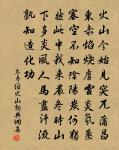 火山今始見突兀蒲昌
東赤焰燒虜雲炎氛蒸
塞空不知陰陽炭何獨
然此中我來嚴冬時山
下多炎風人馬盡汗流
孰知造化功
岑參經火山詩典網